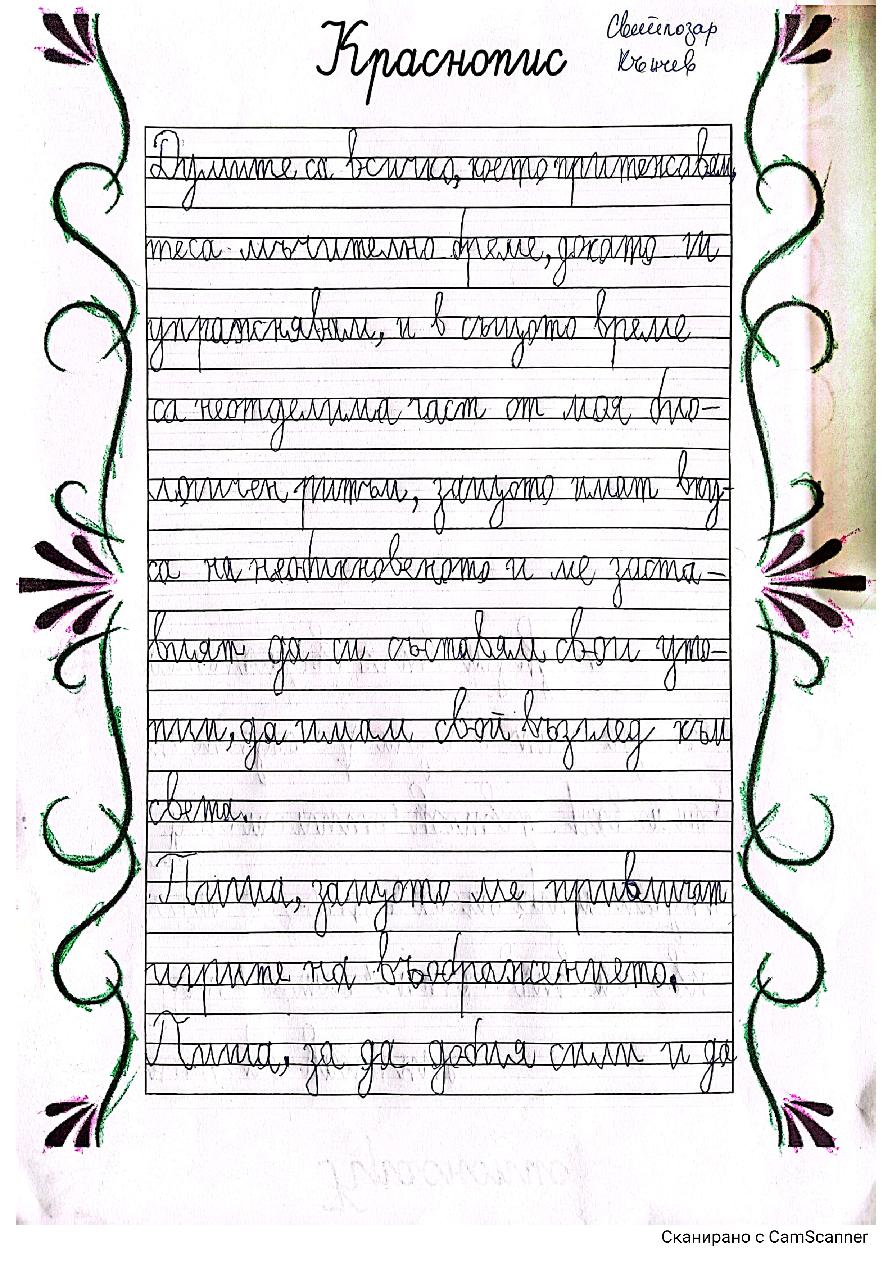 Краснопис
Светлозар
Кънчев
Думите са всичко, което притежавам,
те са мъчително бреме, докато ги
упражнявам, и в същото време
са неотделима част от моя био-
логичен ритъм, защото имат вку-
са на необикновеното и ме заста-
вят да си съставям свои уто-
пии, да имам свой възглед към
света.
Пиша, защото ме привличат
игрите на въображението.
Пиша, за да добия сили и да
Сканирано с CamScanner